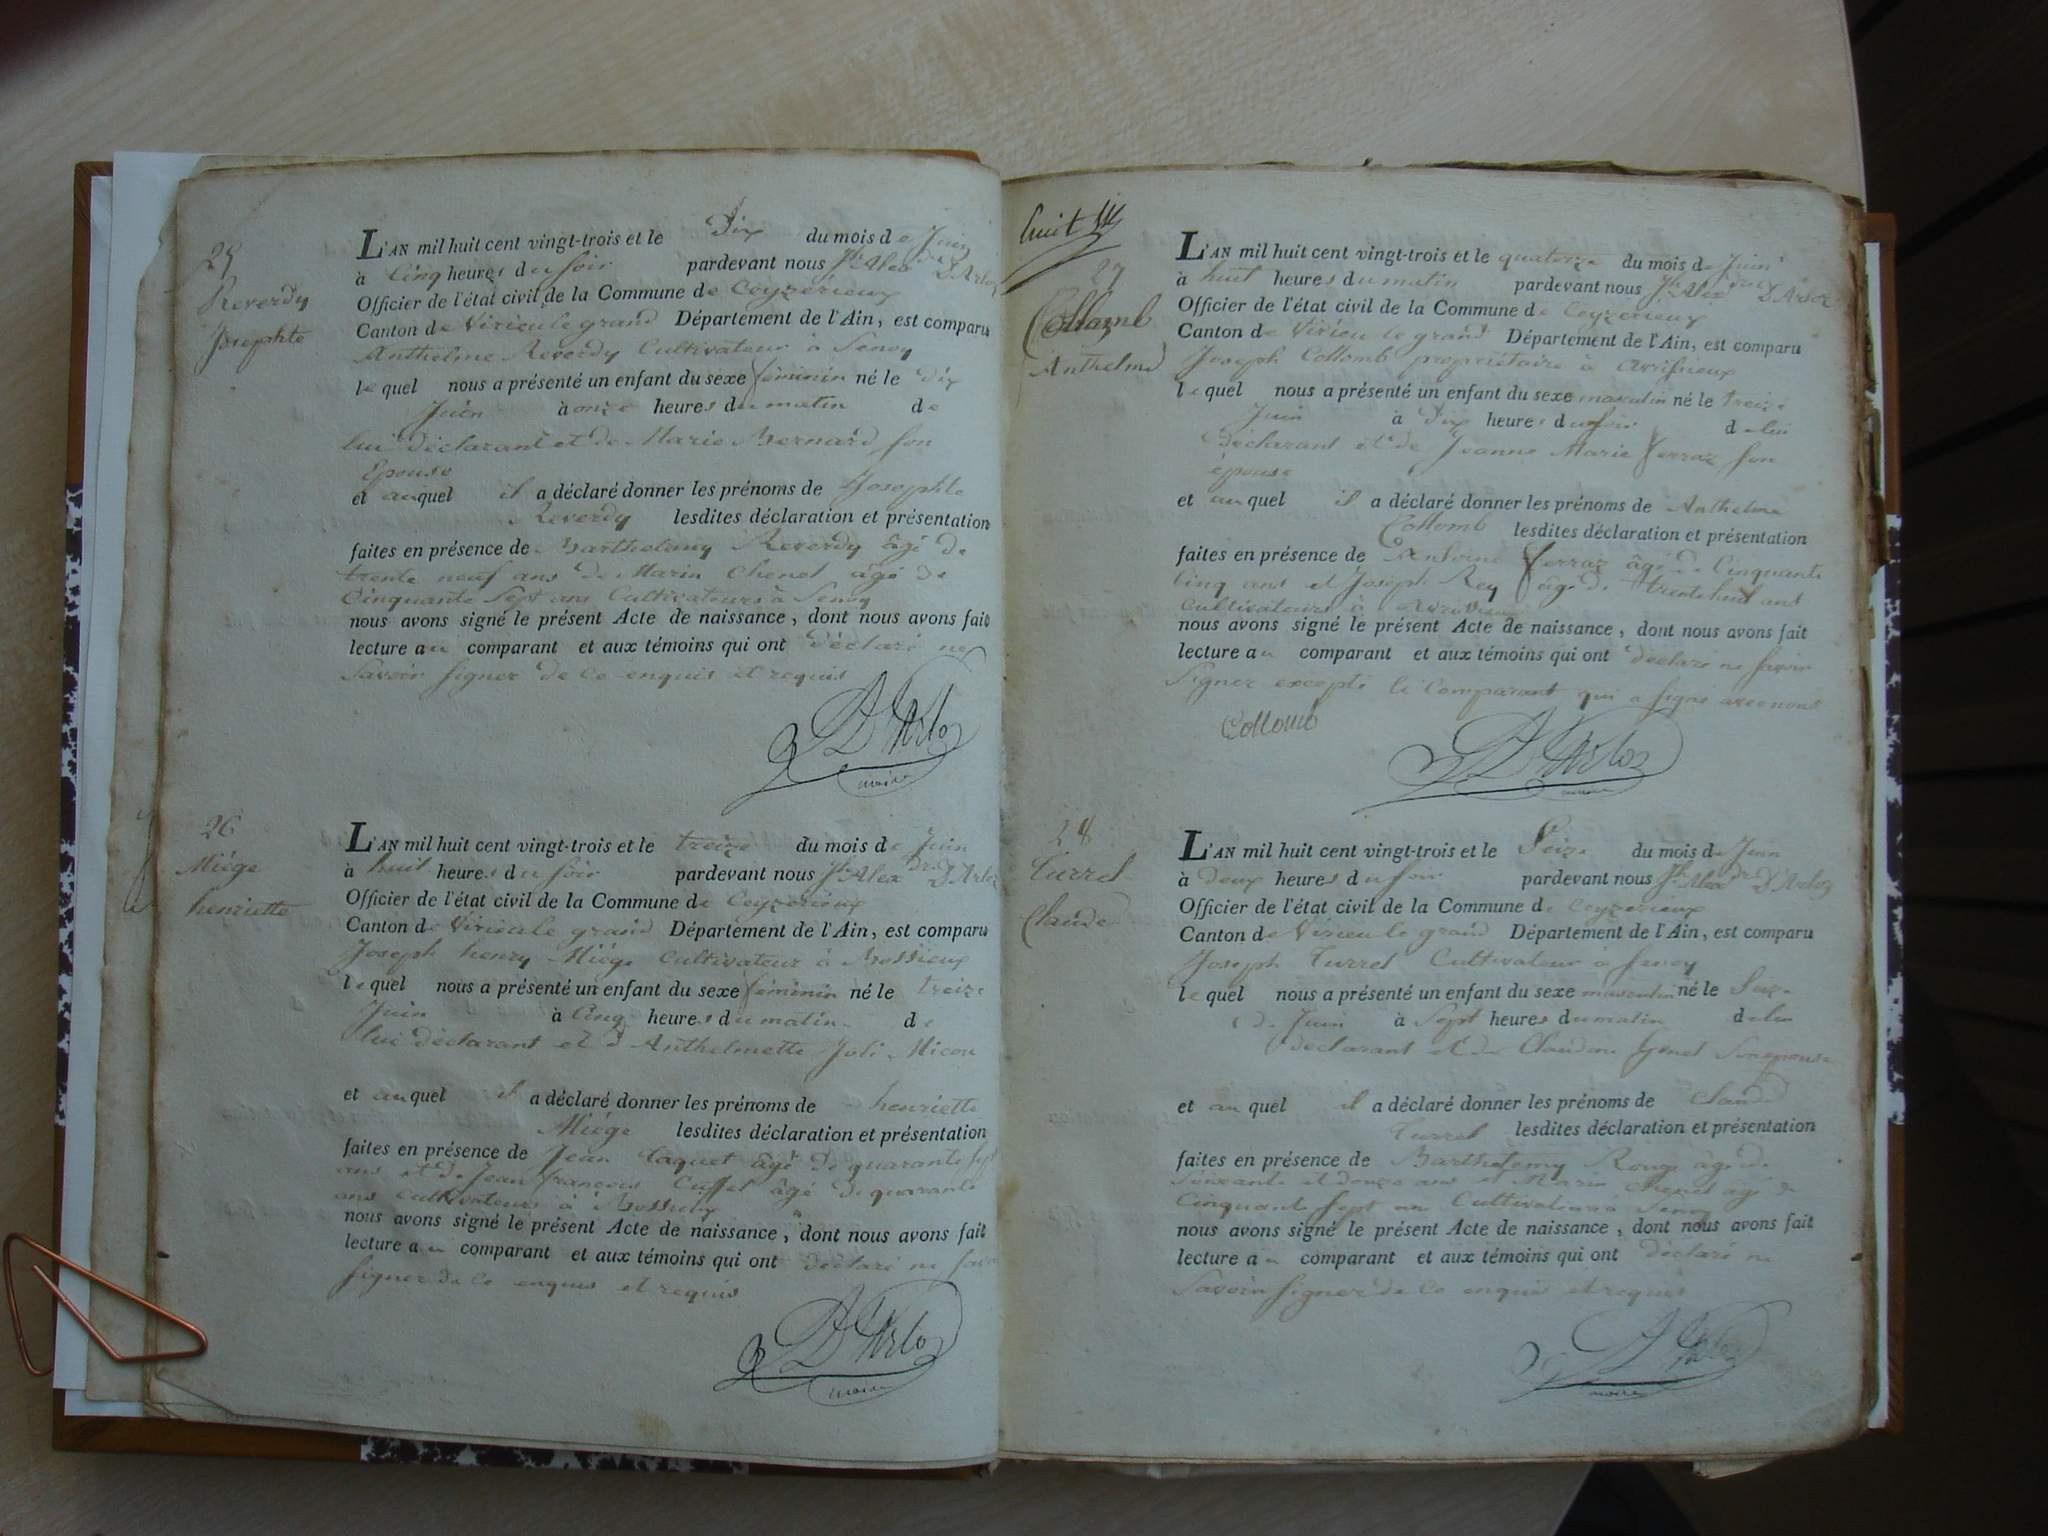 25
Reverdy
Josephte
L'AN mil huit cent vingt-trois et le Dix du mois de Juin
à Cinq heures du soir pardevant nous Jh Alexdre D'Arloz
Officier de l'état civil de la Commune de Ceyzerieux
Canton de Virieu le grand Département de l'Ain, est comparu
Anthelme Reverdy Cultivateur à Senoy
lequel nous a présenté un enfant du sexe féminin né le dix
Juin à onze heures du matin de
lui déclarant et de Marie Bernard son
Epouse
et auquel il a déclaré donner les prénoms de Josephte
Reverdy lesdites déclaration et présentation
faites en présence de Barthelemy Reverdy âgé de
trente neuf ans de Marin Chenel âgé de
Cinquante Sept ans Cultivateurs à Senoy
nous avons signé le présent Acte de naissance, dont nous avons fait
lecture au comparant et aux témoins qui ont déclaré ne
Savoir signer de ce enquis et requis
D'Arloz
maire
26
Miége
henriette
L'AN mil huit cent vingt-trois et le treize du mois de Juin
à huit heures du soir pardevant nous Jh Alexdre D'Arloz
Officier de l'état civil de la Commune de Ceyzerieux
Canton de Virieu le grand Département de l'Ain, est comparu
Joseph henry Miége Cultivateur à Bossieux
lequel nous a présenté un enfant du sexe féminin né le treize
Juin à Cinq heures du matin de
lui déclarant et d'Anthelmette Joli Micou
et auquel il a déclaré donner les prénoms de henriette
Miége lesdites déclaration et présentation
faites en présence de Jean Taquet âgé de quarante sept
ans et de Jean françois Cuffet âgé de quarante
ans Cultivateurs à Bossieux
nous avons signé le présent Acte de naissance, dont nous avons fait
lecture au comparant et aux témoins qui ont déclaré ne savoir
signer de ce enquis et requis
D'Arloz
maire
huit
27
Collomb
Anthelme
L'AN mil huit cent vingt-trois et le quatorze du mois de Juin
à huit heures du matin pardevant nous Jh Alexdre D'Arloz
Officier de l'état civil de la Commune de Ceyzerieux
Canton de Virieu le grand Département de l'Ain, est comparu
Joseph Collomb propriétaire à Avrissieux
lequel nous a présenté un enfant du sexe masculin né le treize
Juin à Dix heures du soir de lui
déclarant et de Jeanne Marie ferraz son
épouse
et auquel il a déclaré donner les prénoms de Anthelme
Collomb lesdites déclaration et présentation
faites en présence de Antoine ferraz âgé de Cinquante
Cinq ans et Joseph Rey âgé de trente huit ans
Cultivateurs à Avrissieux
nous avons signé le présent Acte de naissance, dont nous avons fait
lecture au comparant et aux témoins qui ont déclaré ne savoir
Signer excepté le Comparant qui a signé avec nous
Collomb
D'Arloz
maire
28
Turrel
Claude
L'AN mil huit cent vingt-trois et le Seize du mois de Juin
à deux heures du soir pardevant nous Jh Alexdre D'Arloz
Officier de l'état civil de la Commune de Ceyzerieux
Canton de Virieu le grand Département de l'Ain, est comparu
Joseph Turrel Cultivateur à Senoy
lequel nous a présenté un enfant du sexe masculin né le Seize
de Juin à Sept heures du matin de lui
déclarant et de Claudine Genet Son epouse
et auquel il a déclaré donner les prénoms de Claude
Turrel lesdites déclaration et présentation
faites en présence de Barthelemy Rouge âgé de
Soixante et douze ans et Marin Chenel âgé de
Cinquante Sept ans Cultivateurs à Senoy
nous avons signé le présent Acte de naissance, dont nous avons fait
lecture au comparant et aux témoins qui ont déclaré ne
Savoir signer de ce enquis et requis
D'Arloz
maire